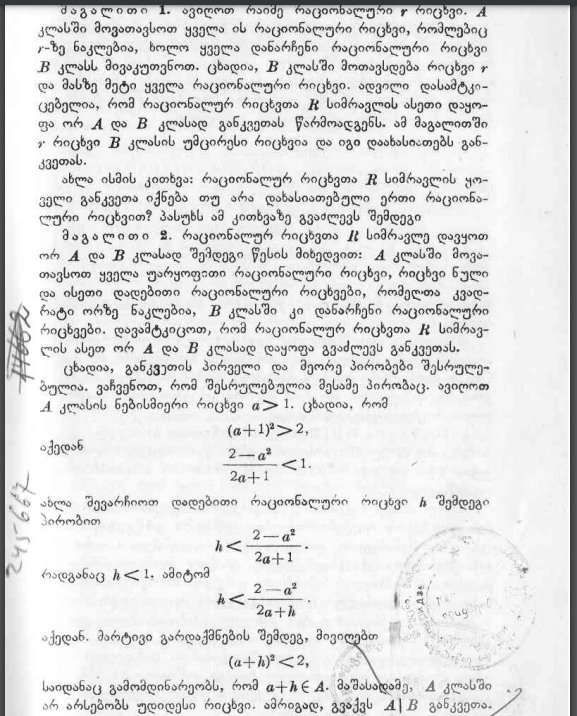 მაგალითი 1. ავიღოთ რაიმე რაციონალური r რიცხვი. A
კლასში მოვათავსოთ ყველა ის რაციონალური რიცხვი, რომლებიც
r-ზე ნაკლებია, ხოლო ყველა დანარჩენი რაციონალური რიცხვი
B კლასს მივაკუთვნოთ. ცხადია, B კლასში მოთავსდება რიცხვი r
და მასზე მეტი ყველა რაციონალური რიცხვი. ადვილი დასამტკი-
ცებელია, რომ რაციონალურ რიცხვთა R სიმრავლის ასეთი დაყო-
ფა ორ A და B კლასად განკვეთას წარმოადგენს. ამ მაგალითში
r რიცხვი B კლასის უმცირესი რიცხვია და იგი დაახასიათებს გან-
კვეთას.
ახლა ისმის კითხვა: რაციონალურ რიცხვთა R სიმრავლის ყო-
ველი განკვეთა იქნება თუ არა დახასიათებული ერთი რაციონა-
ლური რიცხვით? პასუხს ამ კითხვაზე გვაძლევს შემდეგი
მაგალითი 2. რაციონალურ რიცხვთა R სიმრავლე დავყოთ
ორ A და B კლასად შემდეგი წესის მიხედვით: A კლასში მოვა-
თავსოთ ყველა უარყოფითი რაციონალური რიცხვი, რიცხვი ნული
და ისეთი დადებითი რაციონალური რიცხვები, რომელთა კვად-
რატი ორზე ნაკლებია, B კლასში კი დანარჩენი რაციონალური
რიცხვები. დავამტკიცოთ, რომ რაციონალურ რიცხვთა R სიმრავ-
ლის ასეთ ორ A და B კლასად დაყოფა გვაძლევს განკვეთას.
ცხადია, განკვეთის პირველი და მეორე პირობები შესრულე-
ბულია. ვაჩვენოთ, რომ შესრულებულია მესამე პირობაც. ავიღოთ
A კლასის ნებისმიერი რიცხვი a > 1. ცხადია, რომ
(a+1)² > 2,
აქედან
2 — a²
2a + 1
< 1.
ახლა შევარჩიოთ დადებითი რაციონალური რიცხვი h შემდეგი
პირობით
h <
2 — a²
2a + 1
.
რადგანაც h < 1, ამიტომ
h <
2 — a²
2a + h
.
აქედან. მარტივი გარდაქმნების შემდეგ, მივიღებთ
(a+h)² < 2,
საიდანაც გამომდინარეობს, რომ a+h ∈ A. მაშასადამე, A კლასში
არ არსებობს უდიდესი რიცხვი. ამრიგად, გვაქვს A | B განკვეთა.